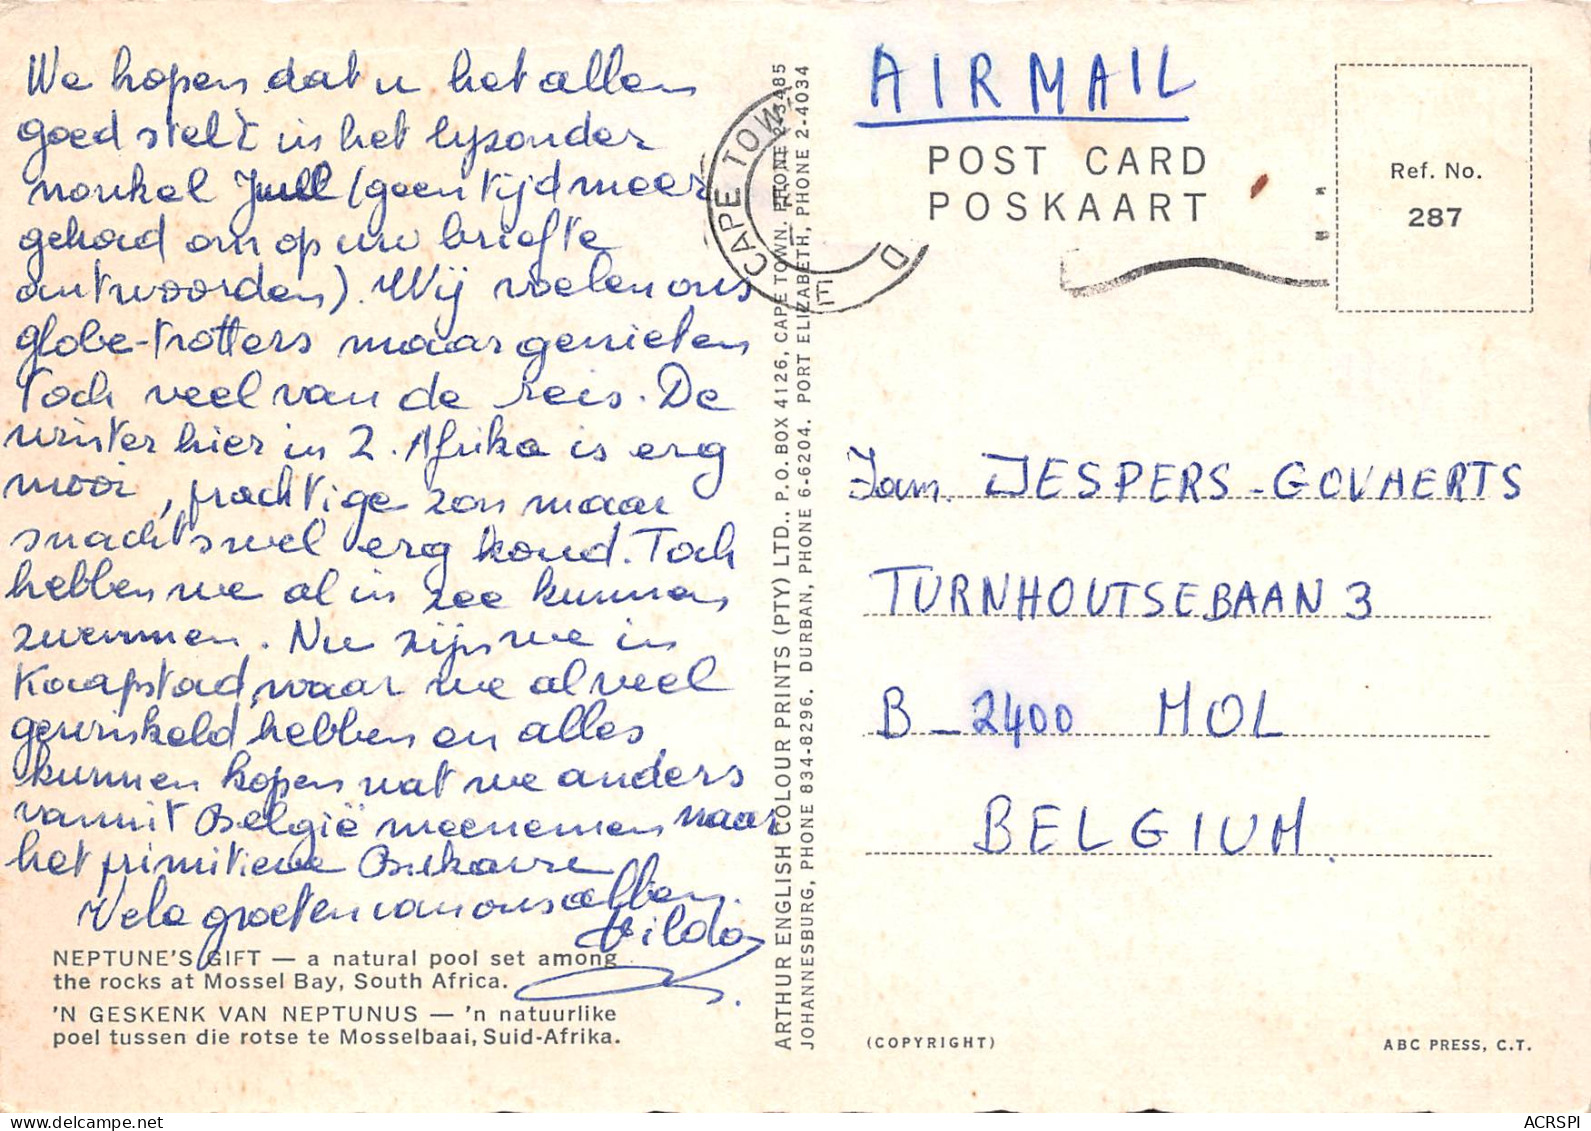 We hopen dat u het allen
goed stelt in het byzonder
nonkel (geen tijd meer
gehad om op uw briefje
antwoorden). Wij voelen ons
globe-trotters maar genieten
toch veel van de reis. De
winter hier in Z. Afrika is erg
mooi, prachtige zon maar
snachts wel erg koud. Toch
hebben we al in zee kunnen
zwemmen. Nu zijn we in
Kaapstad, waar we al veel
gewinkeld hebben en alles
kunnen kopen wat we anders
vanuit België meenemen naar
het primitieve Bukavu
Vele groeten van ons allen.
Hilda
NEPTUNE'S GIFT — a natural pool set among
the rocks at Mossel Bay, South Africa.
'N GESKENK VAN NEPTUNUS — 'n natuurlike
poel tussen die rotse te Mosselbaai, Suid-Afrika.
CAPE TOWN
ARTHUR ENGLISH COLOUR PRINTS (PTY) LTD., P.O. BOX 4126, CAPE TOWN. PHONE 2-3485
JOHANNESBURG, PHONE 834-8296. DURBAN, PHONE 6-6204. PORT ELIZABETH, PHONE 2-4034
AIRMAIL
POST CARD
POSKAART
Ref. No.
287
Fam. IJESPERS-GOVAERTS
TURNHOUTSEBAAN 3
B-2400 MOL
BELGIUM.
(COPYRIGHT)
ABC PRESS, C.T.
ACRSPI